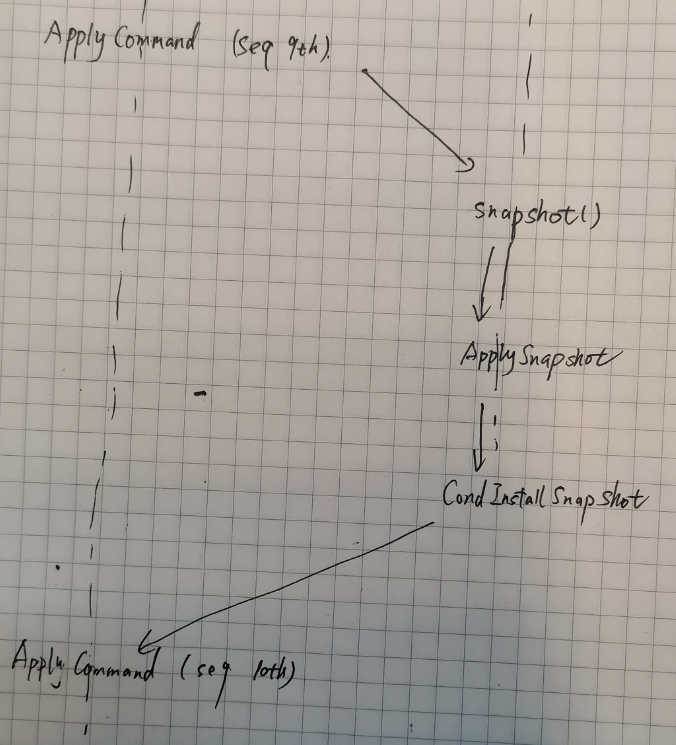 Apply Command (seq 9th).
Snapshot()
Apply Snapshot
Cond Install Snapshot
Apply Command (seq 10th)